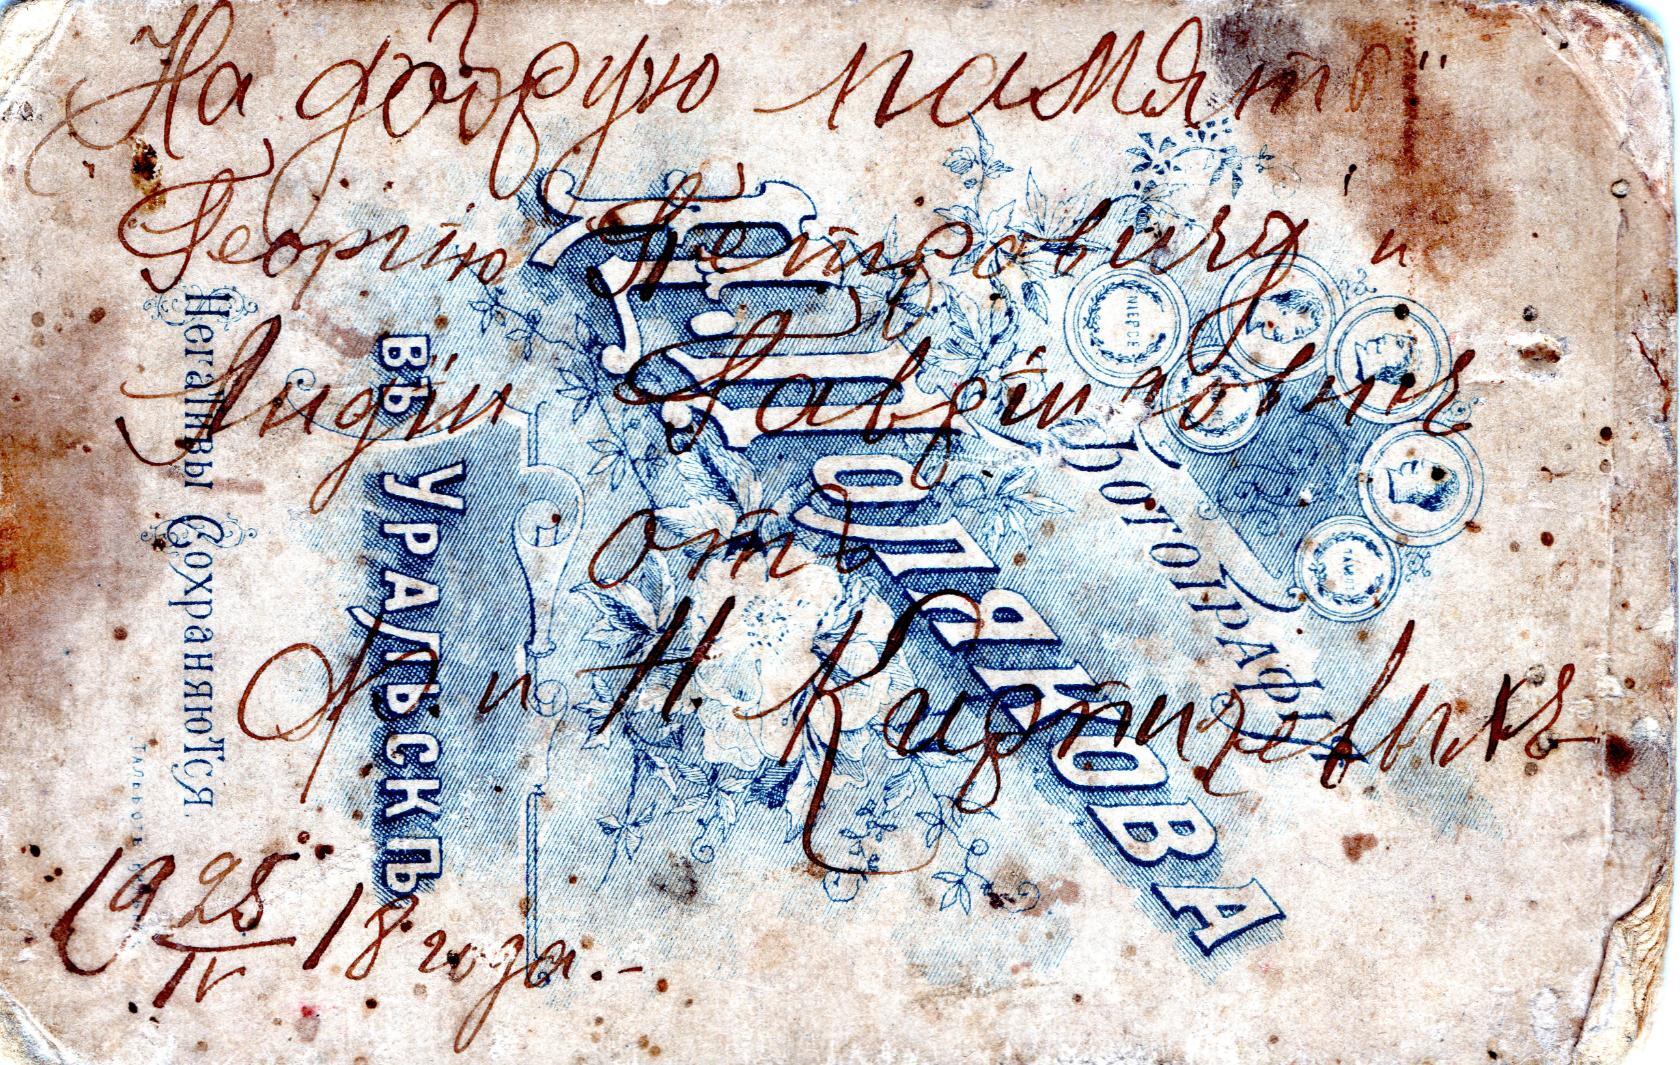 На добрую память"
Георгію Петровичу и
Лидіи Гавріиловнѣ
отъ
А и Н. Курти
19 25/IV 18 года.-
Фотографія
П. Полякова
въ Уральскѣ
Негативы Сохраняются.